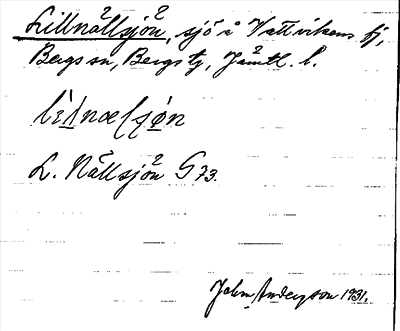 Lillnällsjön, sjö å Vattvikens fj,
Bergs sn, Bergs tg, Jämtl. l.
L. Nällsjön G 73.
John Anderson 1931.